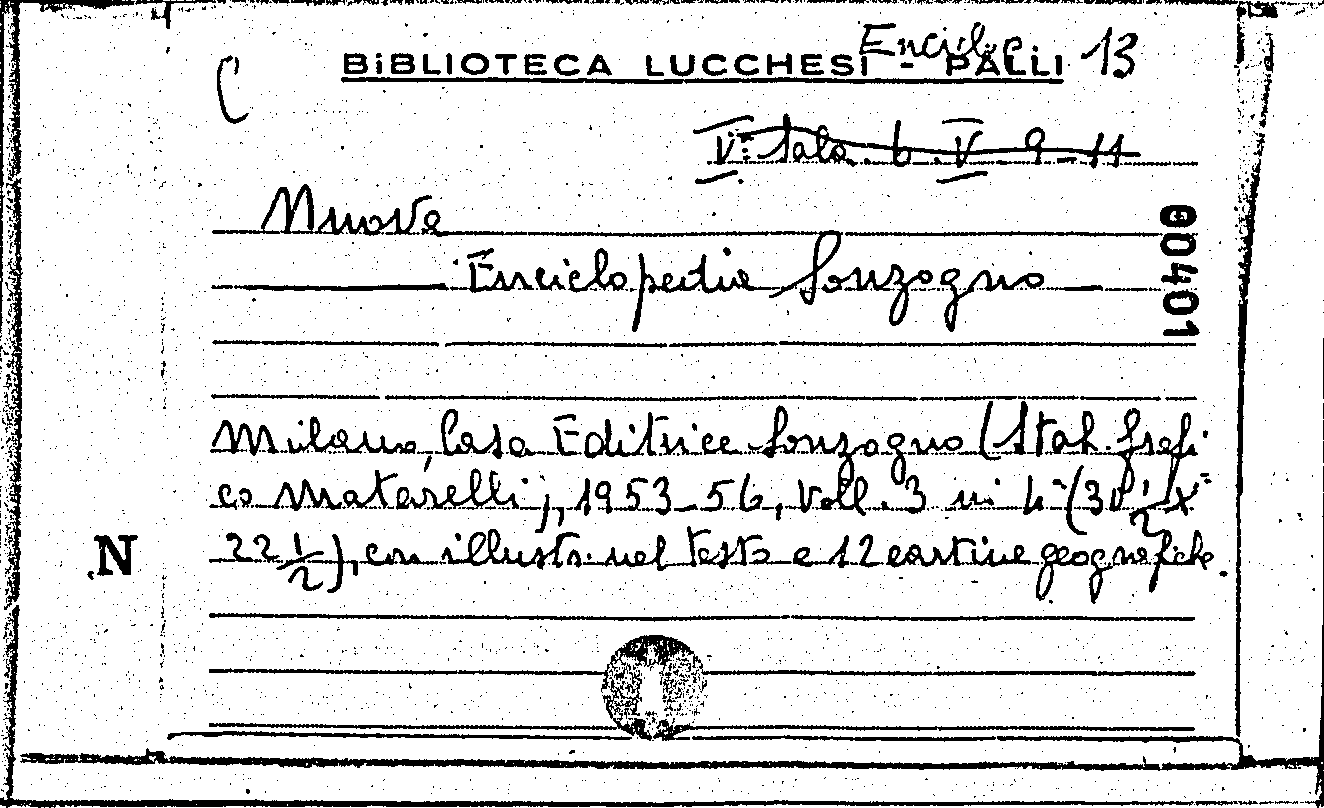 Enciclop. 13
C BIBLIOTECA LUCCHESI - PALLI
Vª Sala. b. V. 9-11
Nuova
Enciclopedia Sonzogno
00401
Milano, Casa Editrice Sonzogno (Stab. Grafi-
co Matarelli), 1953-56, Voll. 3 in 4° (30 1/2 x
22 1/2), con illustr. nel testo e 12 cartine geografiche.
N